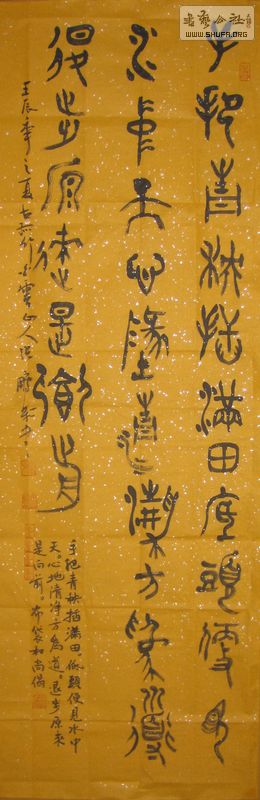 手把青秧插满田低頭便見
水中天心地清净方為道
退步原来是向前
壬辰年之夏
手把青秧插满田。低頭便見水中
天。心地清净方為道。退步原来
是向前。布袋和尚偈
書艺公社
WWW.SHUFA.ORG